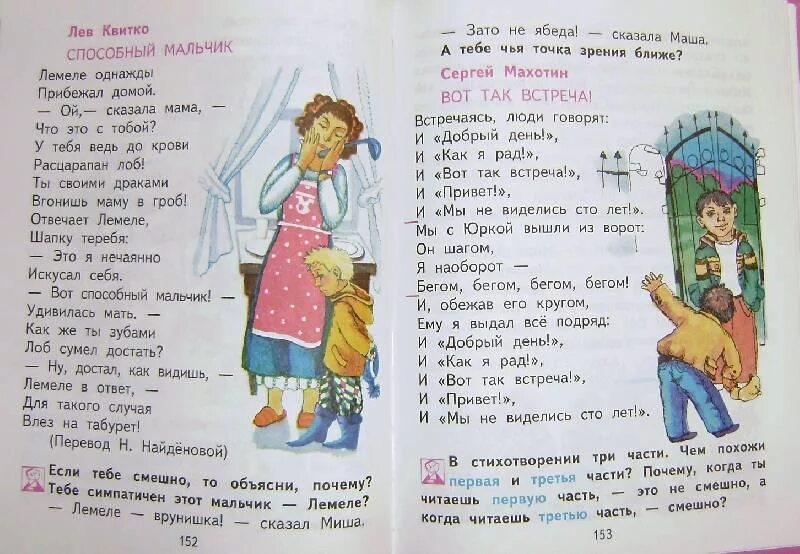 Лев Квитко
СПОСОБНЫЙ МАЛЬЧИК
Лемеле однажды
Прибежал домой.
— Ой,— сказала мама, —
Что это с тобой?
У тебя ведь до крови
Расцарапан лоб!
Ты своими драками
Вгонишь маму в гроб!
Отвечает Лемеле,
Шапку теребя:
— Это я нечаянно
Искусал себя.
— Вот способный мальчик! —
Удивилась мать. —
Как же ты зубами
Лоб сумел достать?
— Ну, достал, как видишь, —
Лемеле в ответ, —
Для такого случая
Влез на табурет!
(Перевод Н. Найдёновой)
Если тебе смешно, то объясни, почему?
Тебе симпатичен этот мальчик — Лемеле?
— Лемеле — врунишка! — сказал Миша.
152
— Зато не ябеда! — сказала Маша.
А тебе чья точка зрения ближе?
Сергей Махотин
ВОТ ТАК ВСТРЕЧА!
Встречаясь, люди говорят:
И «Добрый день!»,
И «Как я рад!»,
И «Вот так встреча!»,
И «Привет!»,
И «Мы не виделись сто лет!».
Мы с Юркой вышли из ворот:
Он шагом,
Я наоборот —
Бегом, бегом, бегом, бегом!
И, обежав его кругом,
Ему я выдал всё подряд:
И «Добрый день!»,
И «Как я рад!»,
И «Вот так встреча!»,
И «Привет!»,
И «Мы не виделись сто лет!».
В стихотворении три части. Чем похожи
первая и третья части? Почему, когда ты
читаешь первую часть, — это не смешно, а
когда читаешь третью часть, — смешно?
153